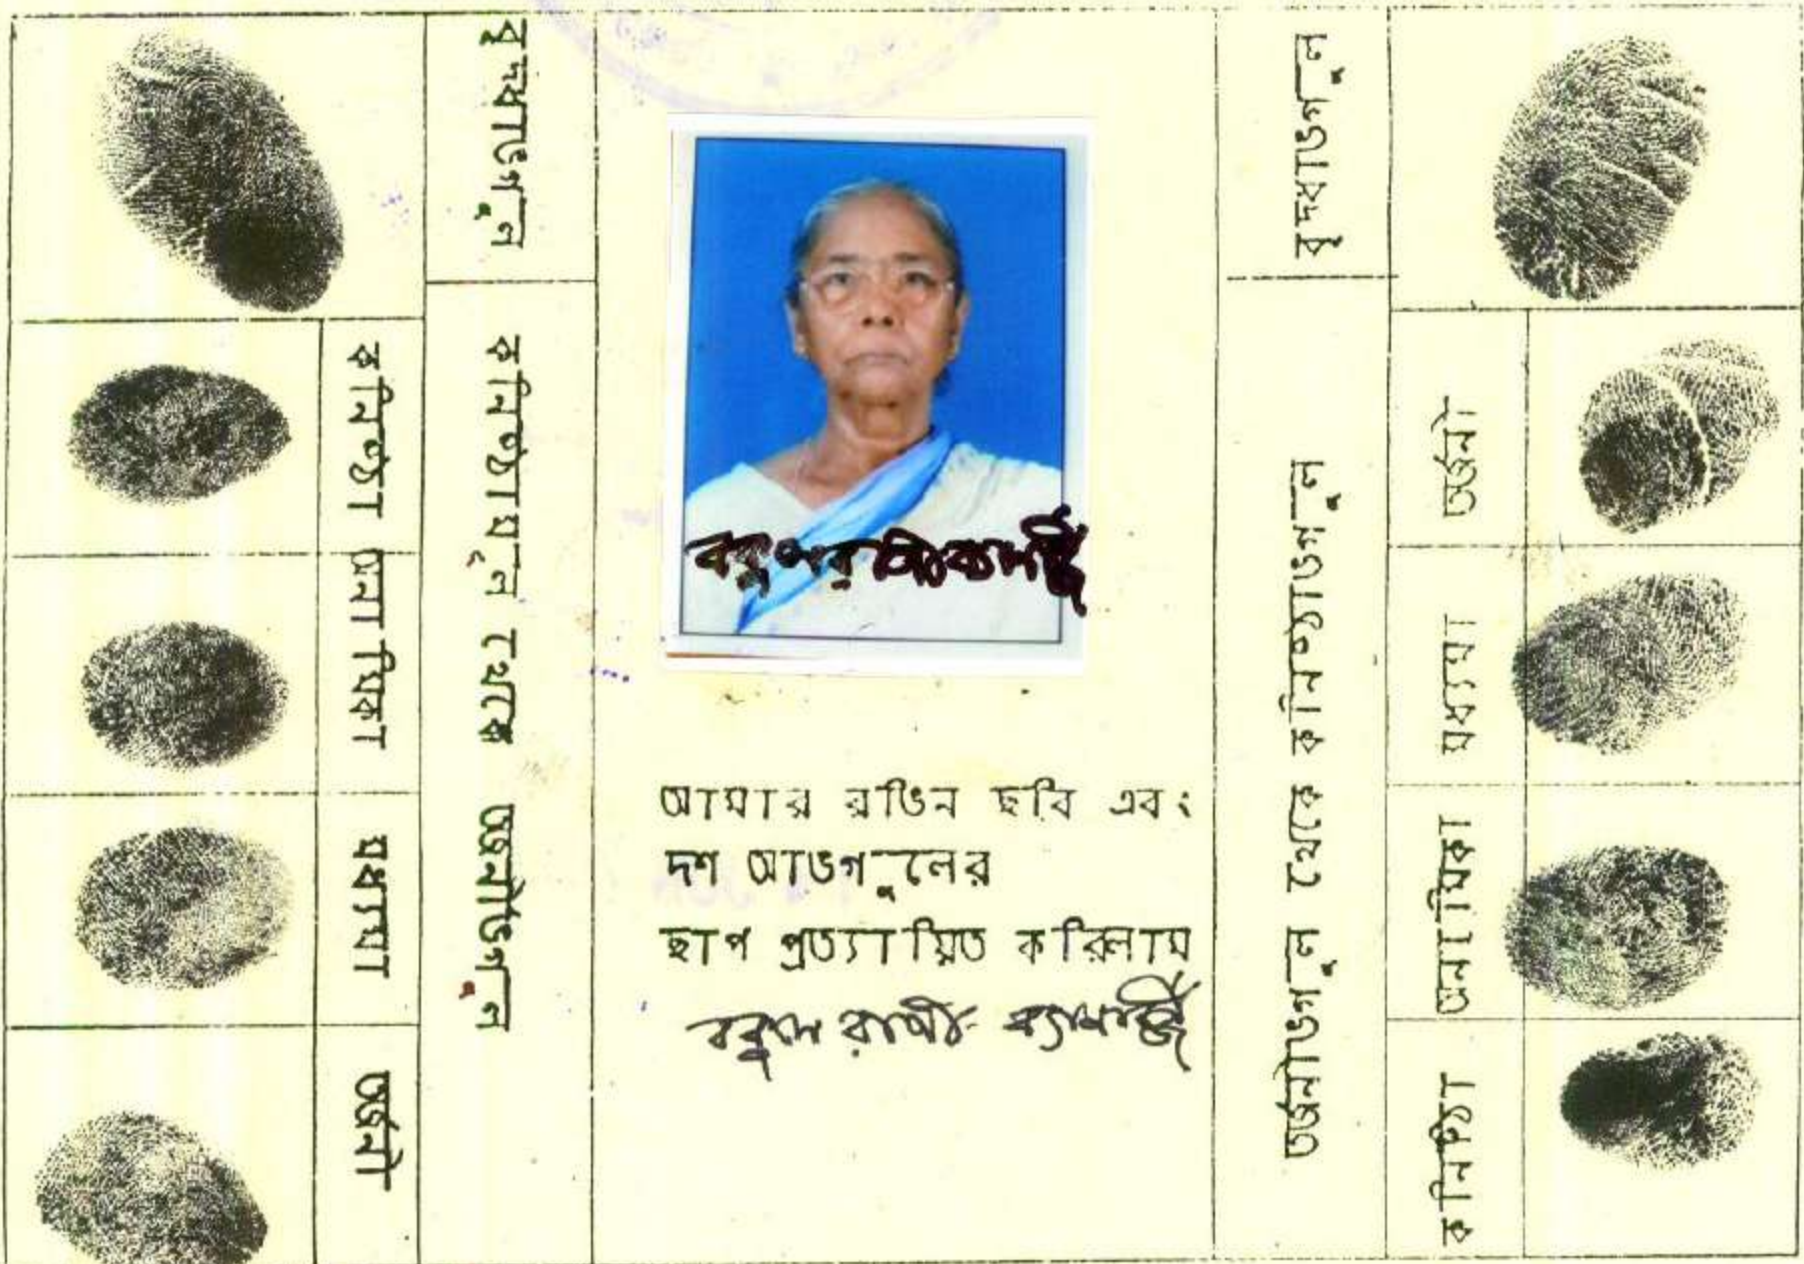 বৃদ্ধাঙ্গুল
কনিষ্ঠা
অনামিকা
মধ্যমা
তর্জনী
কনিষ্ঠামূল থেকে তর্জনীঙ্গুল
আমার রঙিন ছবি এবং
দশ আঙগুলের
ছাপ প্রত্যায়িত করিলাম
বকুল রাণী ব্যানার্জ্জি
বৃদ্ধাঙ্গুল
তর্জনীঙ্গুল থেকে কনিষ্ঠাঙ্গুল
তর্জনী
মধ্যমা
অনামিকা
কনিষ্ঠা